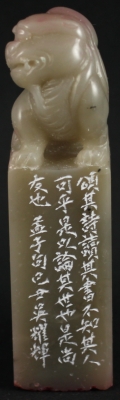 頌其詩讀其書不知其人
可乎是以論其世也是尚
友也 孟子句 己 吳耀輝